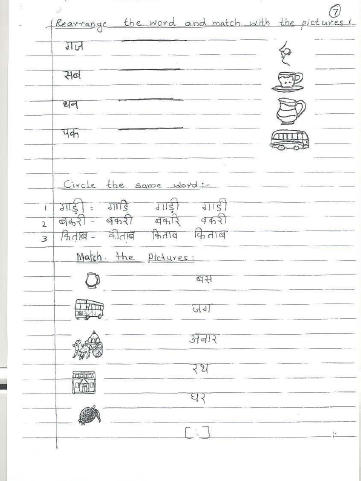 7
Rearrange the word and match with the pictures!
गज
सब
थन
पक
Circle the same word:-
1 गाड़ी : गाड़ि गाड़ी गाड़ी
2 बकरी - बकरी बकरि बकरी
3 किताब - कीताब किताब किताब
Match the Pictures:
बस
जग
अनार
रथ
घर